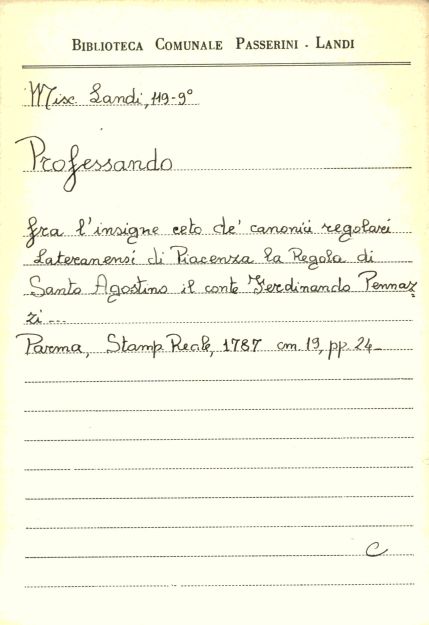 BIBLIOTECA COMUNALE PASSERINI - LANDI
Misc Landi, 119-9°
Professando
fra l'insigne ceto de' canonici regolari
Lateranensi di Piacenza la Regola di
Santo Agostino il conte Ferdinando Pennaz
zi...
Parma, Stamp. Reale, 1787 cm. 19, pp. 24_
C